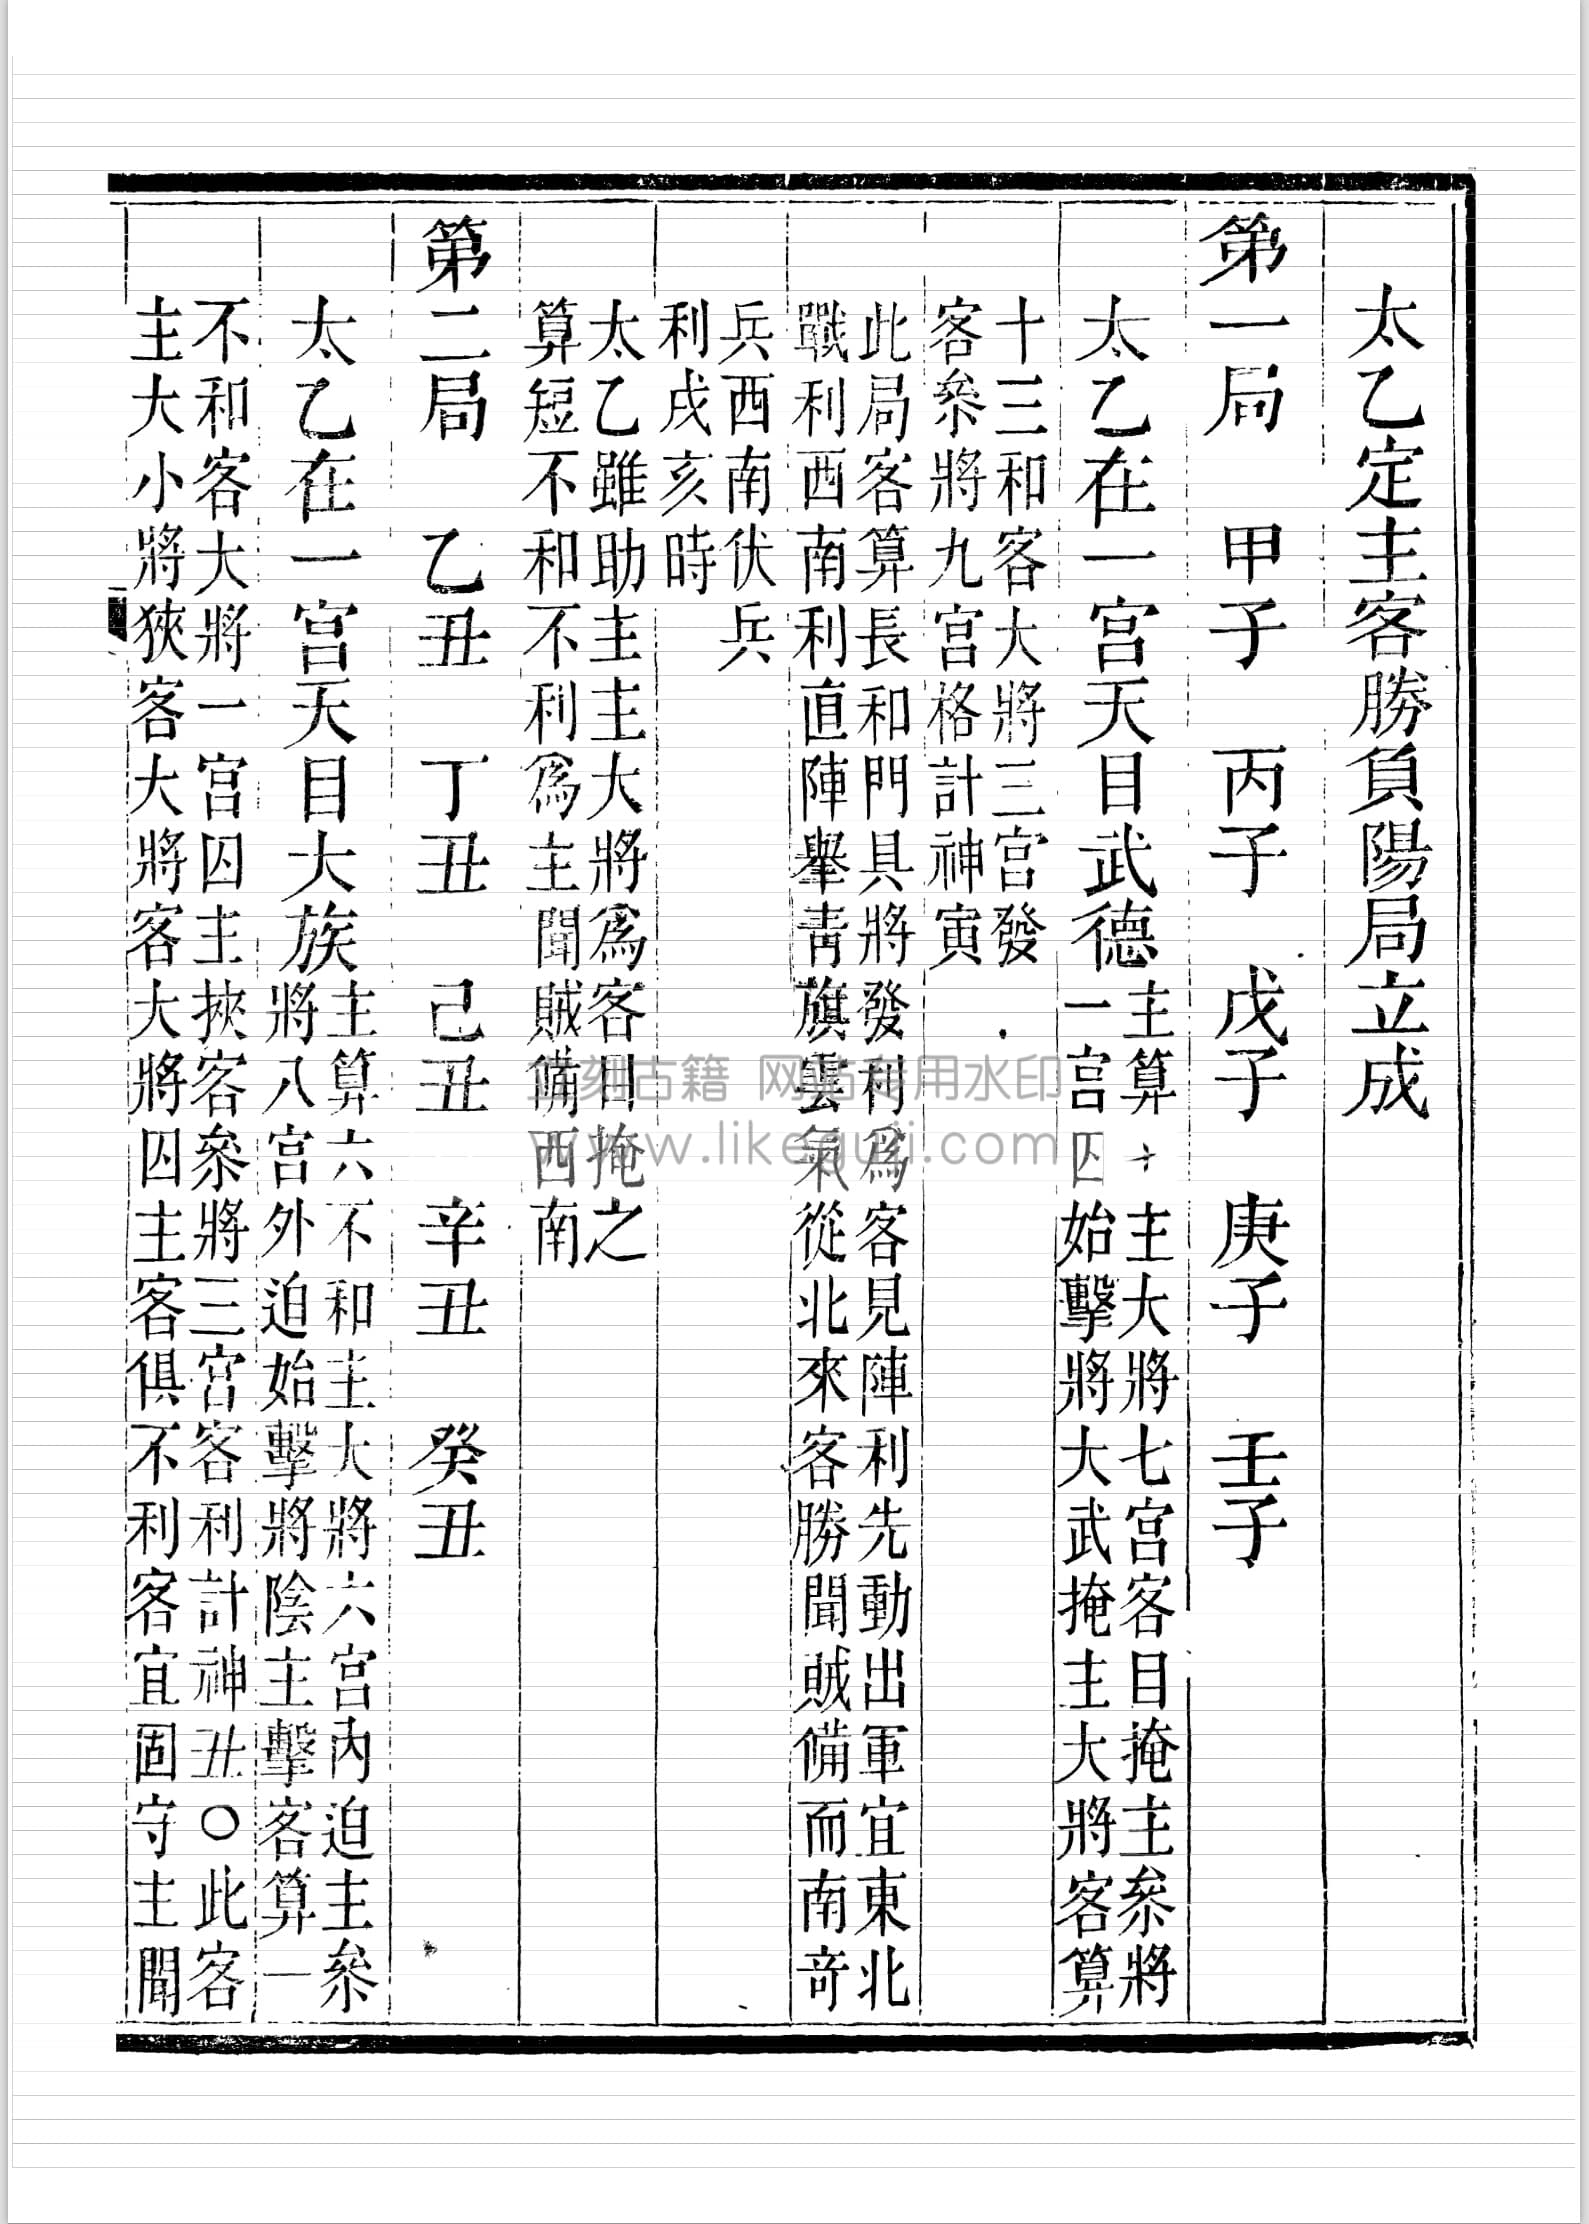 太乙定主客勝負陽局立成
第一局 甲子 丙子 戊子 庚子 壬子
太乙在一宮天目武德
主算十主大將七宮客目掩主叅將
一宮囚始擊將大武掩主大將客算
十三和客大將三宮發
客叅將九宮格計神寅
此局客算長和門具將發利爲客見陣利先動出軍宜東北
戰利西南利直陣舉靑旗雲氣從北來客勝聞賊備而南奇
兵西南伏兵
利戌亥時
太乙雖助主主大將爲客目掩之
算短不和不利爲主聞賊備西南
第二局 乙丑 丁丑 己丑 辛丑 癸丑
太乙在一宮天目大族
主算六不和主大將六宮內迫主叅
將八宮外迫始擊將陰主擊客算一
不和客大將一宮囚主挾客叅將三宮客利計神丑○此客
主大小將狹客大將客大將囚主客俱不利客宜固守主聞
仝刻古籍 网站专用水印
www.likeguji.com